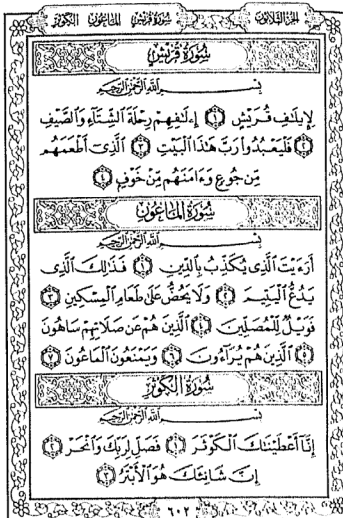 الجزء الثلاثون سورة قريش الماعون الكوثر
سُورَةُ قُرَيْشٍ
بِسْمِ اللَّهِ الرَّحْمَٰنِ الرَّحِيمِ
لِإِيلَٰفِ قُرَيْشٍ ١ إِۦلَٰفِهِمْ رِحْلَةَ الشِّتَآءِ وَالصَّيْفِ
٢ فَلْيَعْبُدُوا۟ رَبَّ هَٰذَا الْبَيْتِ ٣ الَّذِىٓ أَطْعَمَهُم
مِّن جُوعٍ وَءَامَنَهُم مِّنْ خَوْفٍ ٤
سُورَةُ الْمَاعُونِ
بِسْمِ اللَّهِ الرَّحْمَٰنِ الرَّحِيمِ
أَرَءَيْتَ الَّذِى يُكَذِّبُ بِالدِّينِ ١ فَذَٰلِكَ الَّذِى
يَدُعُّ الْيَتِيمَ ٢ وَلَا يَحُضُّ عَلَىٰ طَعَامِ الْمِسْكِينِ ٣
فَوَيْلٌ لِّلْمُصَلِّينَ ٤ الَّذِينَ هُمْ عَن صَلَاتِهِمْ سَاهُونَ
٥ الَّذِينَ هُمْ يُرَآءُونَ ٦ وَيَمْنَعُونَ الْمَاعُونَ ٧
سُورَةُ الْكَوْثَرِ
بِسْمِ اللَّهِ الرَّحْمَٰنِ الرَّحِيمِ
إِنَّآ أَعْطَيْنَٰكَ الْكَوْثَرَ ١ فَصَلِّ لِرَبِّكَ وَانْحَرْ ٢
إِنَّ شَانِئَكَ هُوَ الْأَبْتَرُ ٣
٦٠٢